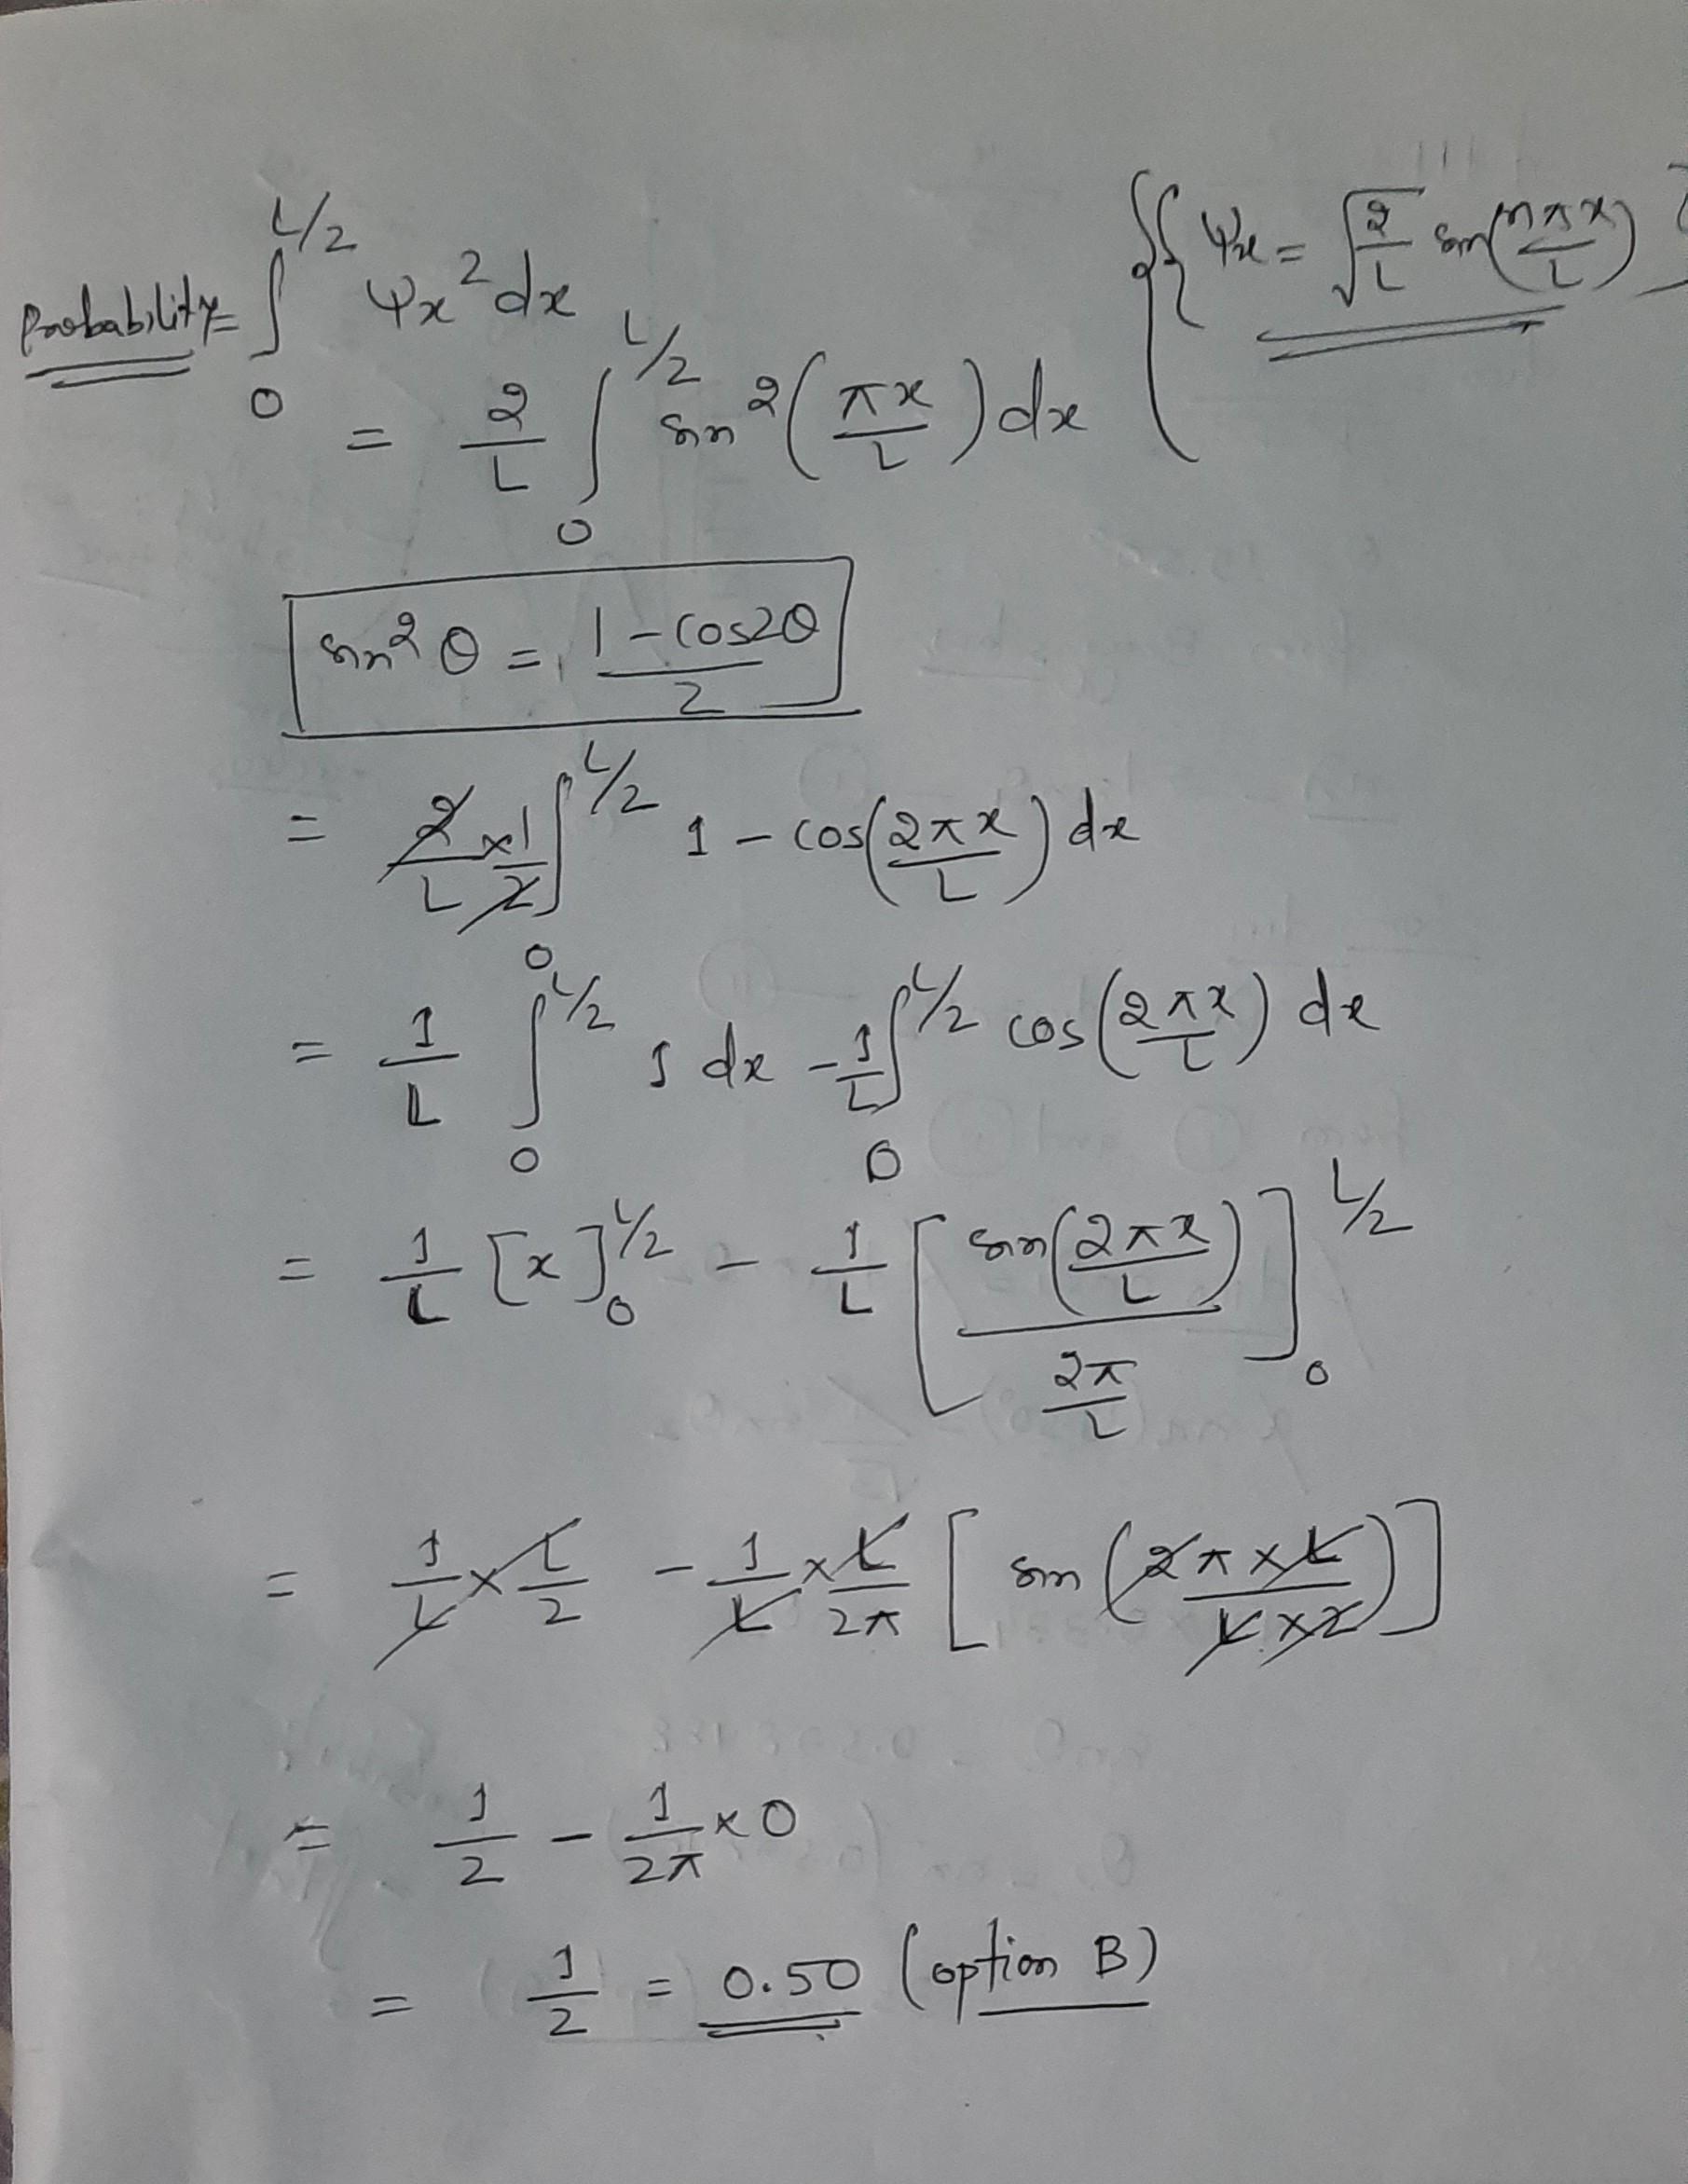 Probability = ∫₀^{L/2} Ψx² dx {{{ Ψx = √(2/L) sin(nπx/L) }
= 2/L ∫₀^{L/2} sin²(πx/L) dx
sin²θ = (1 - cos2θ)/2
= 2/L × 1/2 ∫₀^{L/2} 1 - cos(2πx/L) dx
= 1/L ∫₀^{L/2} 1 dx - 1/L ∫₀^{L/2} cos(2πx/L) dx
= 1/L [x]₀^{L/2} - 1/L [sin(2πx/L) / (2π/L)]₀^{L/2}
= 1/L × L/2 - 1/L × L/2π [sin(2π×L / L×2)]
= 1/2 - 1/2π × 0
= 1/2 = 0.50 (option B)